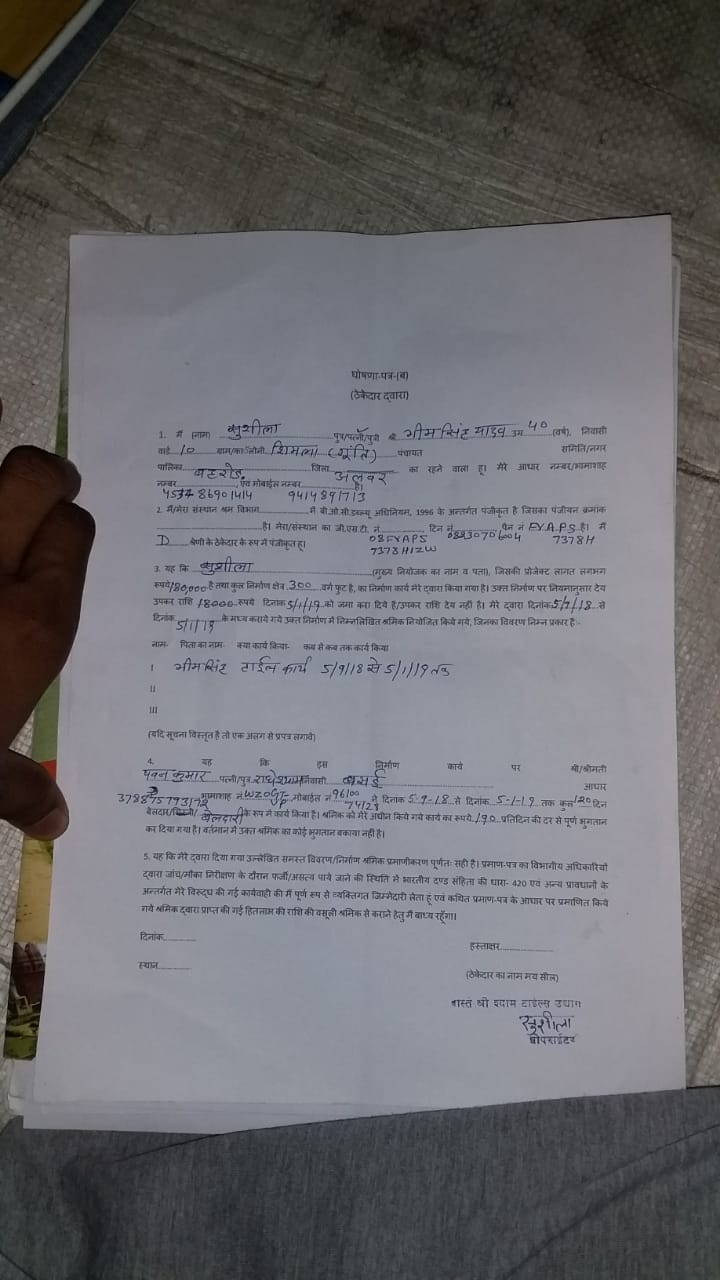 घोषणा-पत्र-(ब)
(ठेकेदार द्वारा)
1. मैं (नाम) सुशीला पुत्र/पत्नी/पुत्री श्री भीमसिंह यादव उम्र 40 (वर्ष), निवासी
वार्ड 10 ग्राम/कॉलोनी शिमला पंचायत समिति/नगर
पालिका बहरोड़ जिला अलवर का रहने वाला हू। मेरे आधार नम्बर/भामाशाह
नम्बर, एवं मोबाईल नम्बर है।
4534 86901414 9414891713
2. मैं/मेरा संस्थान श्रम विभाग में बी.ओ.सी.डब्ल्यू अधिनियम, 1996 के अन्तर्गत पंजीकृत है जिसका पंजीयन क्रमांक
है। मेरा/संस्थान का जी.एस.टी. नं. 08FYAPS 7378H1ZW, टिन नं. पैन नं FYAPS 7378H है। मैं
D श्रेणी के ठेकेदार के रूप में पंजीकृत हू।
3. यह कि सुशीला (मुख्य नियोजक का नाम व पता), जिसकी प्रोजेक्ट लागत लगभग
रूपये 180,000 है तथा कुल निर्माण क्षेत्र 300 वर्ग फुट है, का निर्माण कार्य मेरे द्वारा किया गया है। उक्त निर्माण पर नियमानुसार देय
उपकर राशि 18000 रूपये दिनांक 5/1/19 को जमा करा दिये है/उपकर राशि देय नही है। मेरे द्वारा दिनांक से
दिनांक 5/1/19 के मध्य कराये गये उक्त निर्माण में निम्नलिखित श्रमिक नियोजित किये गये, जिनका विवरण निम्न प्रकार है:-
नाम- पिता का नाम- क्या कार्य किया- कब से कब तक कार्य किया
I भीमसिंह टाईल कार्य 5/9/18 से 5/1/19 तक
II
III
(यदि सूचना विस्तृत है तो एक अलग से प्रपत्र लगावे)
4. यह कि इस निर्माण कार्य पर श्री/श्रीमती
पवन कुमार पत्नी/पुत्र राधेश्याम निवासी बसई आधार
378845793172 भामाशाह नं. मोबाईल नं 96100 74128 ने दिनांक 5-9-18 से दिनांक 5-1-19 तक कुल 120 दिन
बेलदार/ बेलदारी के रूप में कार्य किया है। श्रमिक को मेरे अधीन किये गये कार्य का रूपये 190 प्रतिदिन की दर से पूर्ण भुगतान
कर दिया गया है। वर्तमान में उक्त श्रमिक का कोई भुगतान बकाया नही है।
5. यह कि मेरे द्वारा दिया गया उल्लेखित समस्त विवरण/निर्माण श्रमिक प्रमाणीकरण पूर्णतः सही है। प्रमाण-पत्र का विभागीय अधिकारियों
द्वारा जांच/मौका निरीक्षण के दौरान फर्जी/असत्य पाये जाने की स्थिति में भारतीय दण्ड संहिता की धारा- 420 एवं अन्य प्रावधानों के
अन्तर्गत मेरे विरूद्ध की गई कार्यवाही की मैं पूर्ण रूप से व्यक्तिगत जिम्मेदारी लेता हूं एवं कथित प्रमाण-पत्र के आधार पर प्रमाणित किये
गये श्रमिक द्वारा प्राप्त की गई हितलाभ की राशि की वसूली श्रमिक से कराने हेतु मैं बाध्य रहूँगा।
दिनांक
हस्ताक्षर
स्थान
(ठेकेदार का नाम मय सील)
वास्ते श्री श्याम टाईल्स उद्योग
सुशीला
प्रोपराईटर